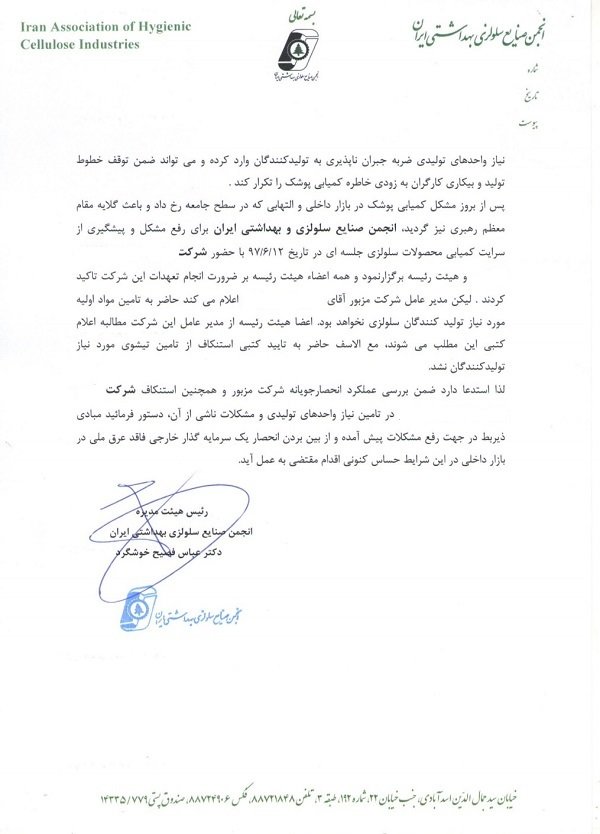 بسمه تعالی
Iran Association of Hygienic
Cellulose Industries
انجمن صنایع سلولزی بهداشتی ایران
انجمن صنایع سلولزی بهداشتی ایران
شماره
تاریخ
پیوست
نیاز واحدهای تولیدی ضربه جبران ناپذیری به تولیدکنندگان وارد کرده و می تواند ضمن توقف خطوط
تولید و بیکاری کارگران به زودی خاطره کمیابی پوشک را تکرار کند .
پس از بروز مشکل کمیابی پوشک در بازار داخلی و التهابی که در سطح جامعه رخ داد و باعث گلایه مقام
معظم رهبری نیز گردید، انجمن صنایع سلولزی و بهداشتی ایران برای رفع مشکل و پیشگیری از
سرایت کمیابی محصولات سلولزی جلسه ای در تاریخ ۹۷/۶/۱۲ با حضور شرکت
و هیئت رئیسه برگزارنمود و همه اعضاء هیئت رئیسه بر ضرورت انجام تعهدات این شرکت تاکید
کردند . لیکن مدیر عامل شرکت مزبور آقای اعلام می کند حاضر به تامین مواد اولیه
مورد نیاز تولید کنندگان سلولزی نخواهد بود. اعضا هیئت رئیسه از مدیر عامل این شرکت مطالبه اعلام
کتبی این مطلب می شوند، مع الاسف حاضر به تایید کتبی استنکاف از تامین تیشوی مورد نیاز
تولیدکنندگان نشد.
لذا استدعا دارد ضمن بررسی عملکرد انحصارجویانه شرکت مزبور و همچنین استنکاف شرکت
در تامین نیاز واحدهای تولیدی و مشکلات ناشی از آن، دستور فرمائید مبادی
ذیربط در جهت رفع مشکلات پیش آمده و از بین بردن انحصار یک سرمایه گذار خارجی فاقد عرق ملی در
بازار داخلی در این شرایط حساس کنونی اقدام مقتضی به عمل آید.
رئیس هیئت مدیره
انجمن صنایع سلولزی بهداشتی ایران
دکتر عباس فصیح خوشگرد
انجمن صنایع سلولزی بهداشتی ایران
خیابان سید جمال الدین اسدآبادی، جنب خیابان ۲۲، شماره ۱۹۲، طبقه ۳، تلفن ۸۸۷۲۱۸۴۸، فکس ۸۸۷۲۴۹۰۶، صندوق پستی ۱۴۳۳۵/۷۷۹